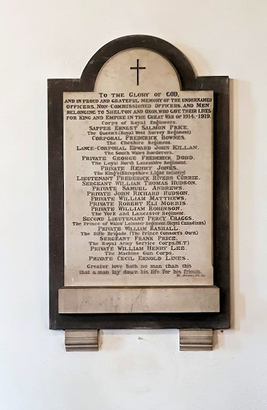 To the Glory of GOD,
and in proud and grateful memory of the undernamed
Officers, Non-Commissioned Officers, and Men
belonging to Shelton and Oxon, who gave their lives
for King and Empire in the Great War of 1914-1919.
Corps of Royal Engineers.
Sapper Ernest Salmon Price.
The Queen's (Royal West Surrey Regiment)
Corporal Frederick Bownes.
The Cheshire Regiment.
Lance-Corporal Edward John Killan.
The South Wales Borderers.
Private George Frederick Dodd.
The Loyal North Lancashire Regiment.
Private Henry Jones.
The King's (Shropshire Light Infantry)
Lieutenant Frederick Rivers Corbie.
Sergeant William Thomas Hudson.
Private Samuel Andrews.
Private John Richard Hudson.
Private William Matthews.
Private Robert Eli Morris.
Private William Robinson.
The York and Lancaster Regiment.
Second Lieutenant Percy Craggs.
The Prince of Wales' Leinster Regiment (Royal Canadians)
Private William Randall.
The Rifle Brigade (The Prince Consort's Own)
Sergeant Frank Price.
The Royal Army Service Corps (M.T)
Private William Henry Lee.
The Machine Gun Corps.
Private Cecil Ennols Lines.
Greater love hath no man than this
that a man lay down his life for his friends.